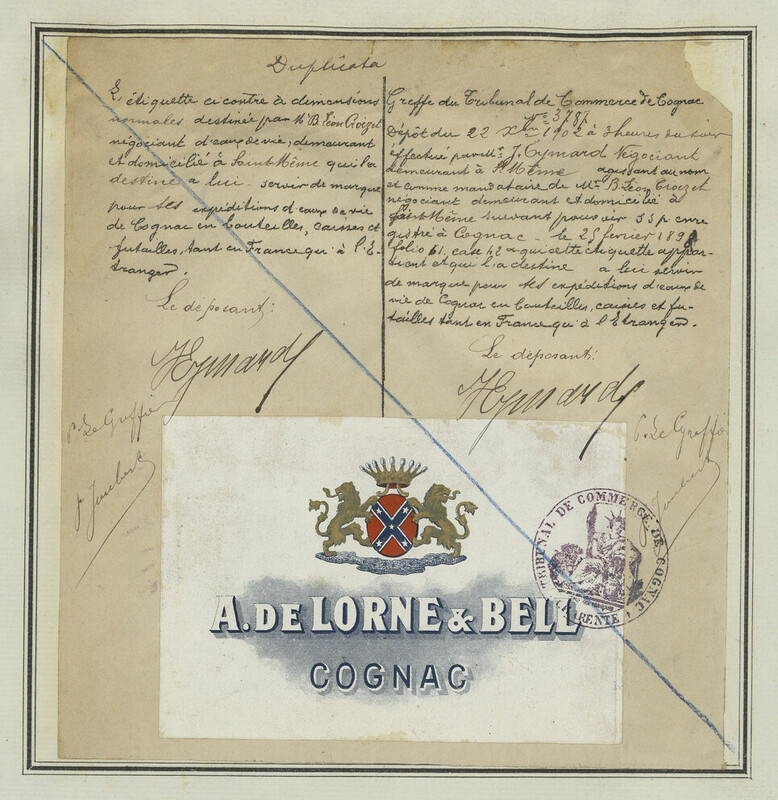 Duplicata
L'étiquette ci contre à demensions
normales destinée par Mr B. Léon Croizet
négociant d'eaux de vie, demeurant
et domicilié à Saint-Même qui la
destine a lui servir de marque
pour ses expéditions d'eaux de vie
de Cognac en bouteilles, caisses et
futailles, tant en France qu'à l'E-
tranger.
Le déposant:
Hymard
P. Le Greffier
Joubert
Greffe du Tribunal de Commerce de Cognac
No 3787
Dépôt du 22 Xbre 1902 à 3 heures du soir
effectué par Mr. J. Eymard Négociant
demeurant à St Même agissant au nom
et comme mandataire de Mr B. Léon Croizet
négociant demeurant et domicilié à
Saint-Même suivant pouvoir s s p enre
gistré à Cognac le 25 fevrier 189
folio 61, case 42 a qui cette étiquette appar-
tient et qui l'a destine a lui servir
de marque pour ses expéditions d'eaux de
vie de Cognac en bouteilles, caisses et fu-
tailles tant en France qu'à l'Etranger.
Le déposant:
Hymard
P. Le Greffier
Joubert
TRIBUNAL DE COMMERCE DE COGNAC
CHARENTE
A. DE LORNE & BELL
COGNAC